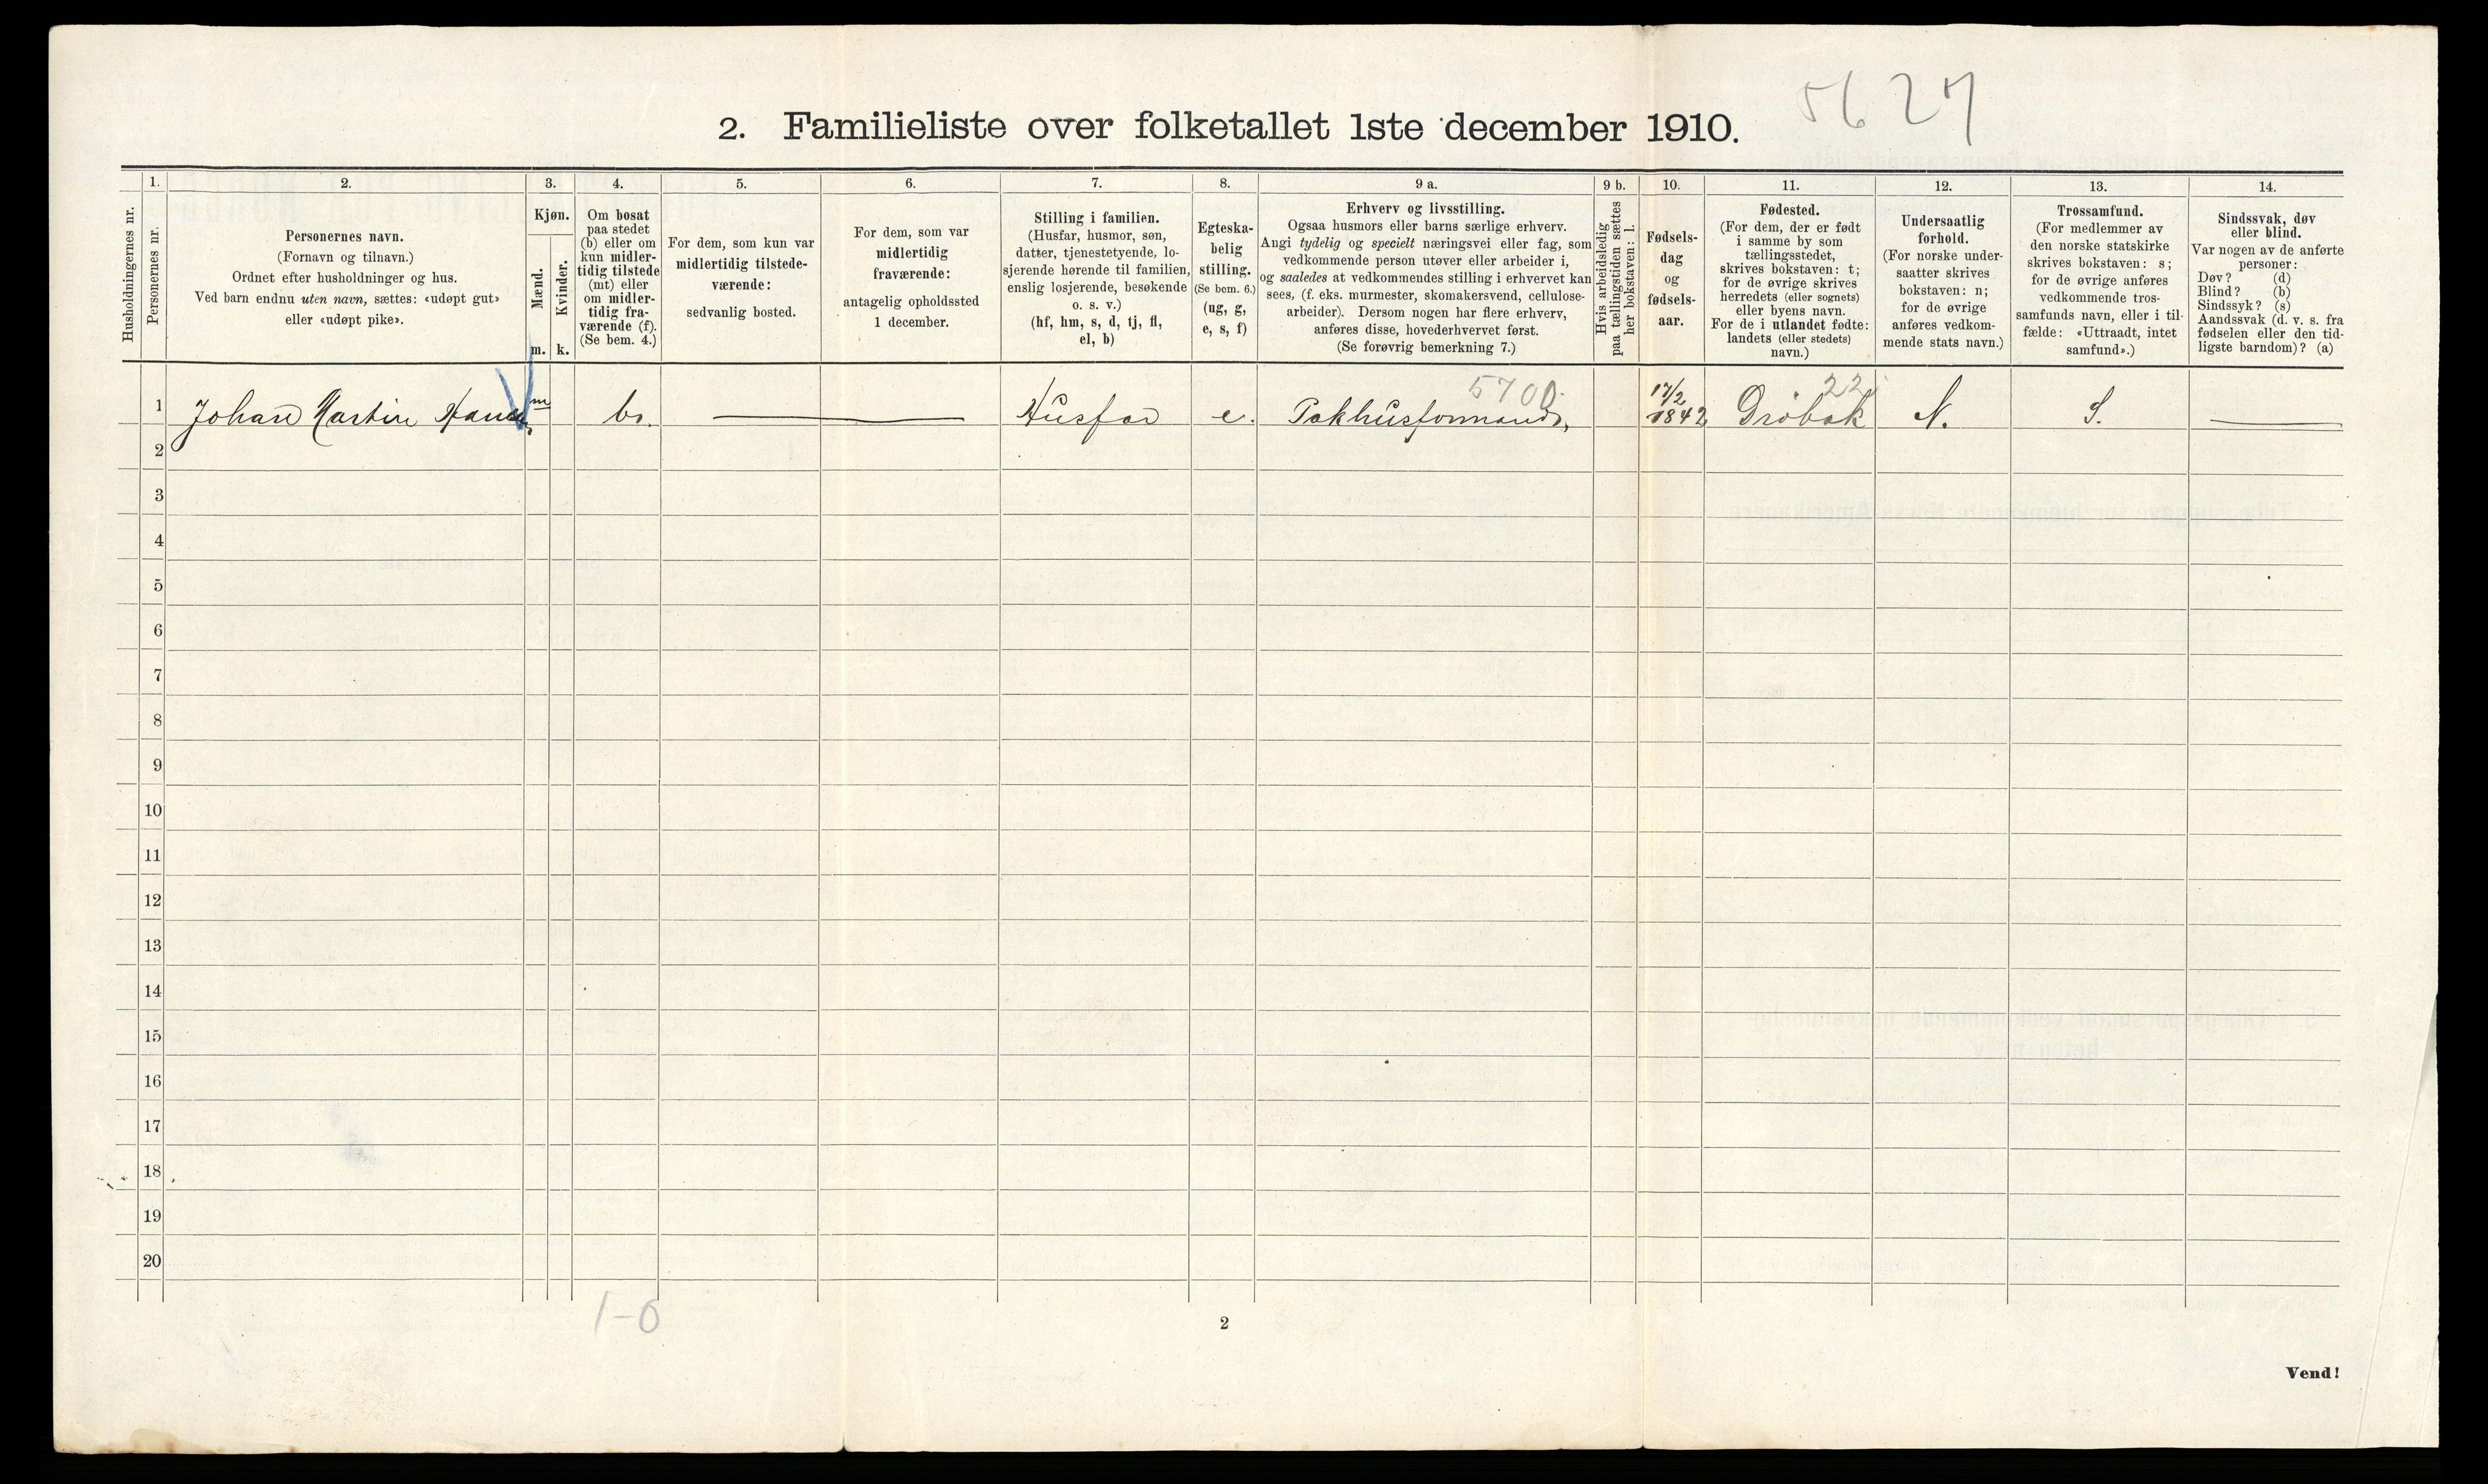 5627
2. Familieliste over folketallet 1ste december 1910.
Husholdningernes nr.
1.
Personernes nr.
2.
Personernes navn.
(Fornavn og tilnavn.)
Ordnet efter husholdninger og hus.
Ved barn endnu uten navn, sættes: «udøpt gut»
eller «udøpt pike».
3.
Kjøn.
Mænd.
m.
Kvinder.
k.
4.
Om bosat
paa stedet
(b) eller om
kun midler-
tidig tilstede
(mt) eller
om midler-
tidig fra-
værende (f).
(Se bem. 4.)
5.
For dem, som kun var
midlertidig tilstede-
værende:
sedvanlig bosted.
6.
For dem, som var
midlertidig
fraværende:
antagelig opholdssted
1 december.
7.
Stilling i familien.
(Husfar, husmor, søn,
datter, tjenestetyende, lo-
sjerende hørende til familien,
enslig losjerende, besøkende
o. s. v.)
(hf, hm, s, d, tj, fl,
el, b)
8.
Egteska-
belig
stilling.
(Se bem. 6.)
(ug, g,
e, s, f)
9 a.
Erhverv og livsstilling.
Ogsaa husmors eller barns særlige erhverv.
Angi tydelig og specielt næringsvei eller fag, som
vedkommende person utøver eller arbeider i,
og saaledes at vedkommendes stilling i erhvervet kan
sees, (f. eks. murmester, skomakersvend, cellulose-
arbeider). Dersom nogen har flere erhverv,
anføres disse, hovederhvervet først.
(Se forøvrig bemerkning 7.)
9 b.
Hvis arbeidsledig
paa tællingstiden sættes
her bokstaven: l.
10.
Fødsels-
dag
og
fødsels-
aar.
11.
Fødested.
(For dem, der er født
i samme by som
tællingsstedet,
skrives bokstaven: t;
for de øvrige skrives
herredets (eller sognets)
eller byens navn.
For de i utlandet fødte:
landets (eller stedets)
navn.)
12.
Undersaatlig
forhold.
(For norske under-
saatter skrives
bokstaven: n;
for de øvrige
anføres vedkom-
mende stats navn.)
13.
Trossamfund.
(For medlemmer av
den norske statskirke
skrives bokstaven: s;
for de øvrige anføres
vedkommende tros-
samfunds navn, eller i til-
fælde: «Uttraadt, intet
samfund».)
14.
Sindssvak, døv
eller blind.
Var nogen av de anførte
personer:
Døv? (d)
Blind? (b)
Sindssyk? (s)
Aandssvak (d. v. s. fra
fødselen eller den tid-
ligste barndom)? (a)
5700. 17/2 22
1 Johan Martin Hansen m b. Husfar e. Pakhusformand, 1842 Drøbak N. S.
2
3
4
5
6
7
8
9
10
11
12
13
14
15
16
17
18
19
20
1-0
2
Vend!